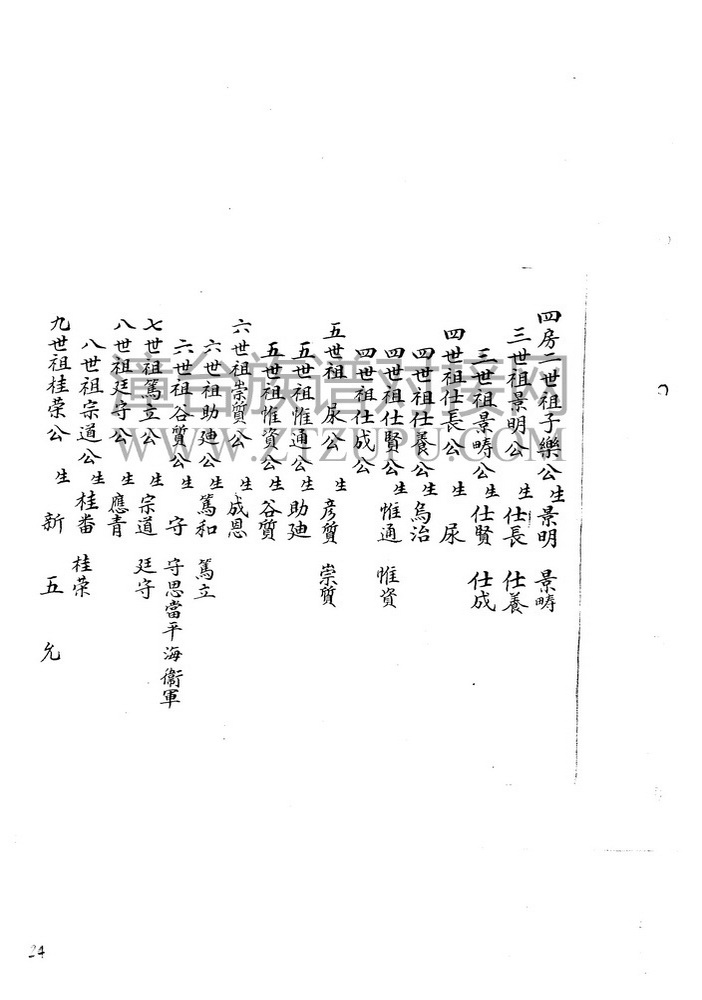 四房二世祖子樂公生景明 景疇
三世祖景明公生仕長 仕養
三世祖景疇公生仕賢 仕成
四世祖仕長公生尿
四世祖仕養公生烏治
四世祖仕賢公生惟通 惟資
四世祖仕成公
五世祖尿公生彦質 崇質
五世祖惟通公生助廸
五世祖惟資公生谷質
六世祖崇質公生成恩
六世祖助廸公生篤和 篤立
六世祖谷質公生守 守思當平海衞軍
七世祖篤立公生宗道 廷守
八世祖廷守公生應青
八世祖宗道公生桂畨 桂荣
九世祖桂荣公生新 五 允
漳台族谱对接网
WWW.ZTZUPU.COM
24